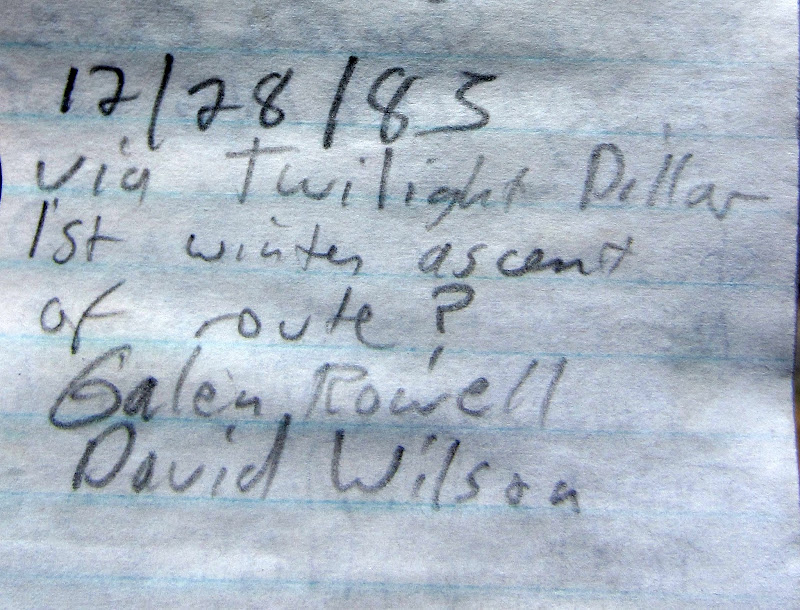 12/28/83
via Twilight Pillar
1st winter ascent
of route?
Galen Rowell
David Wilson